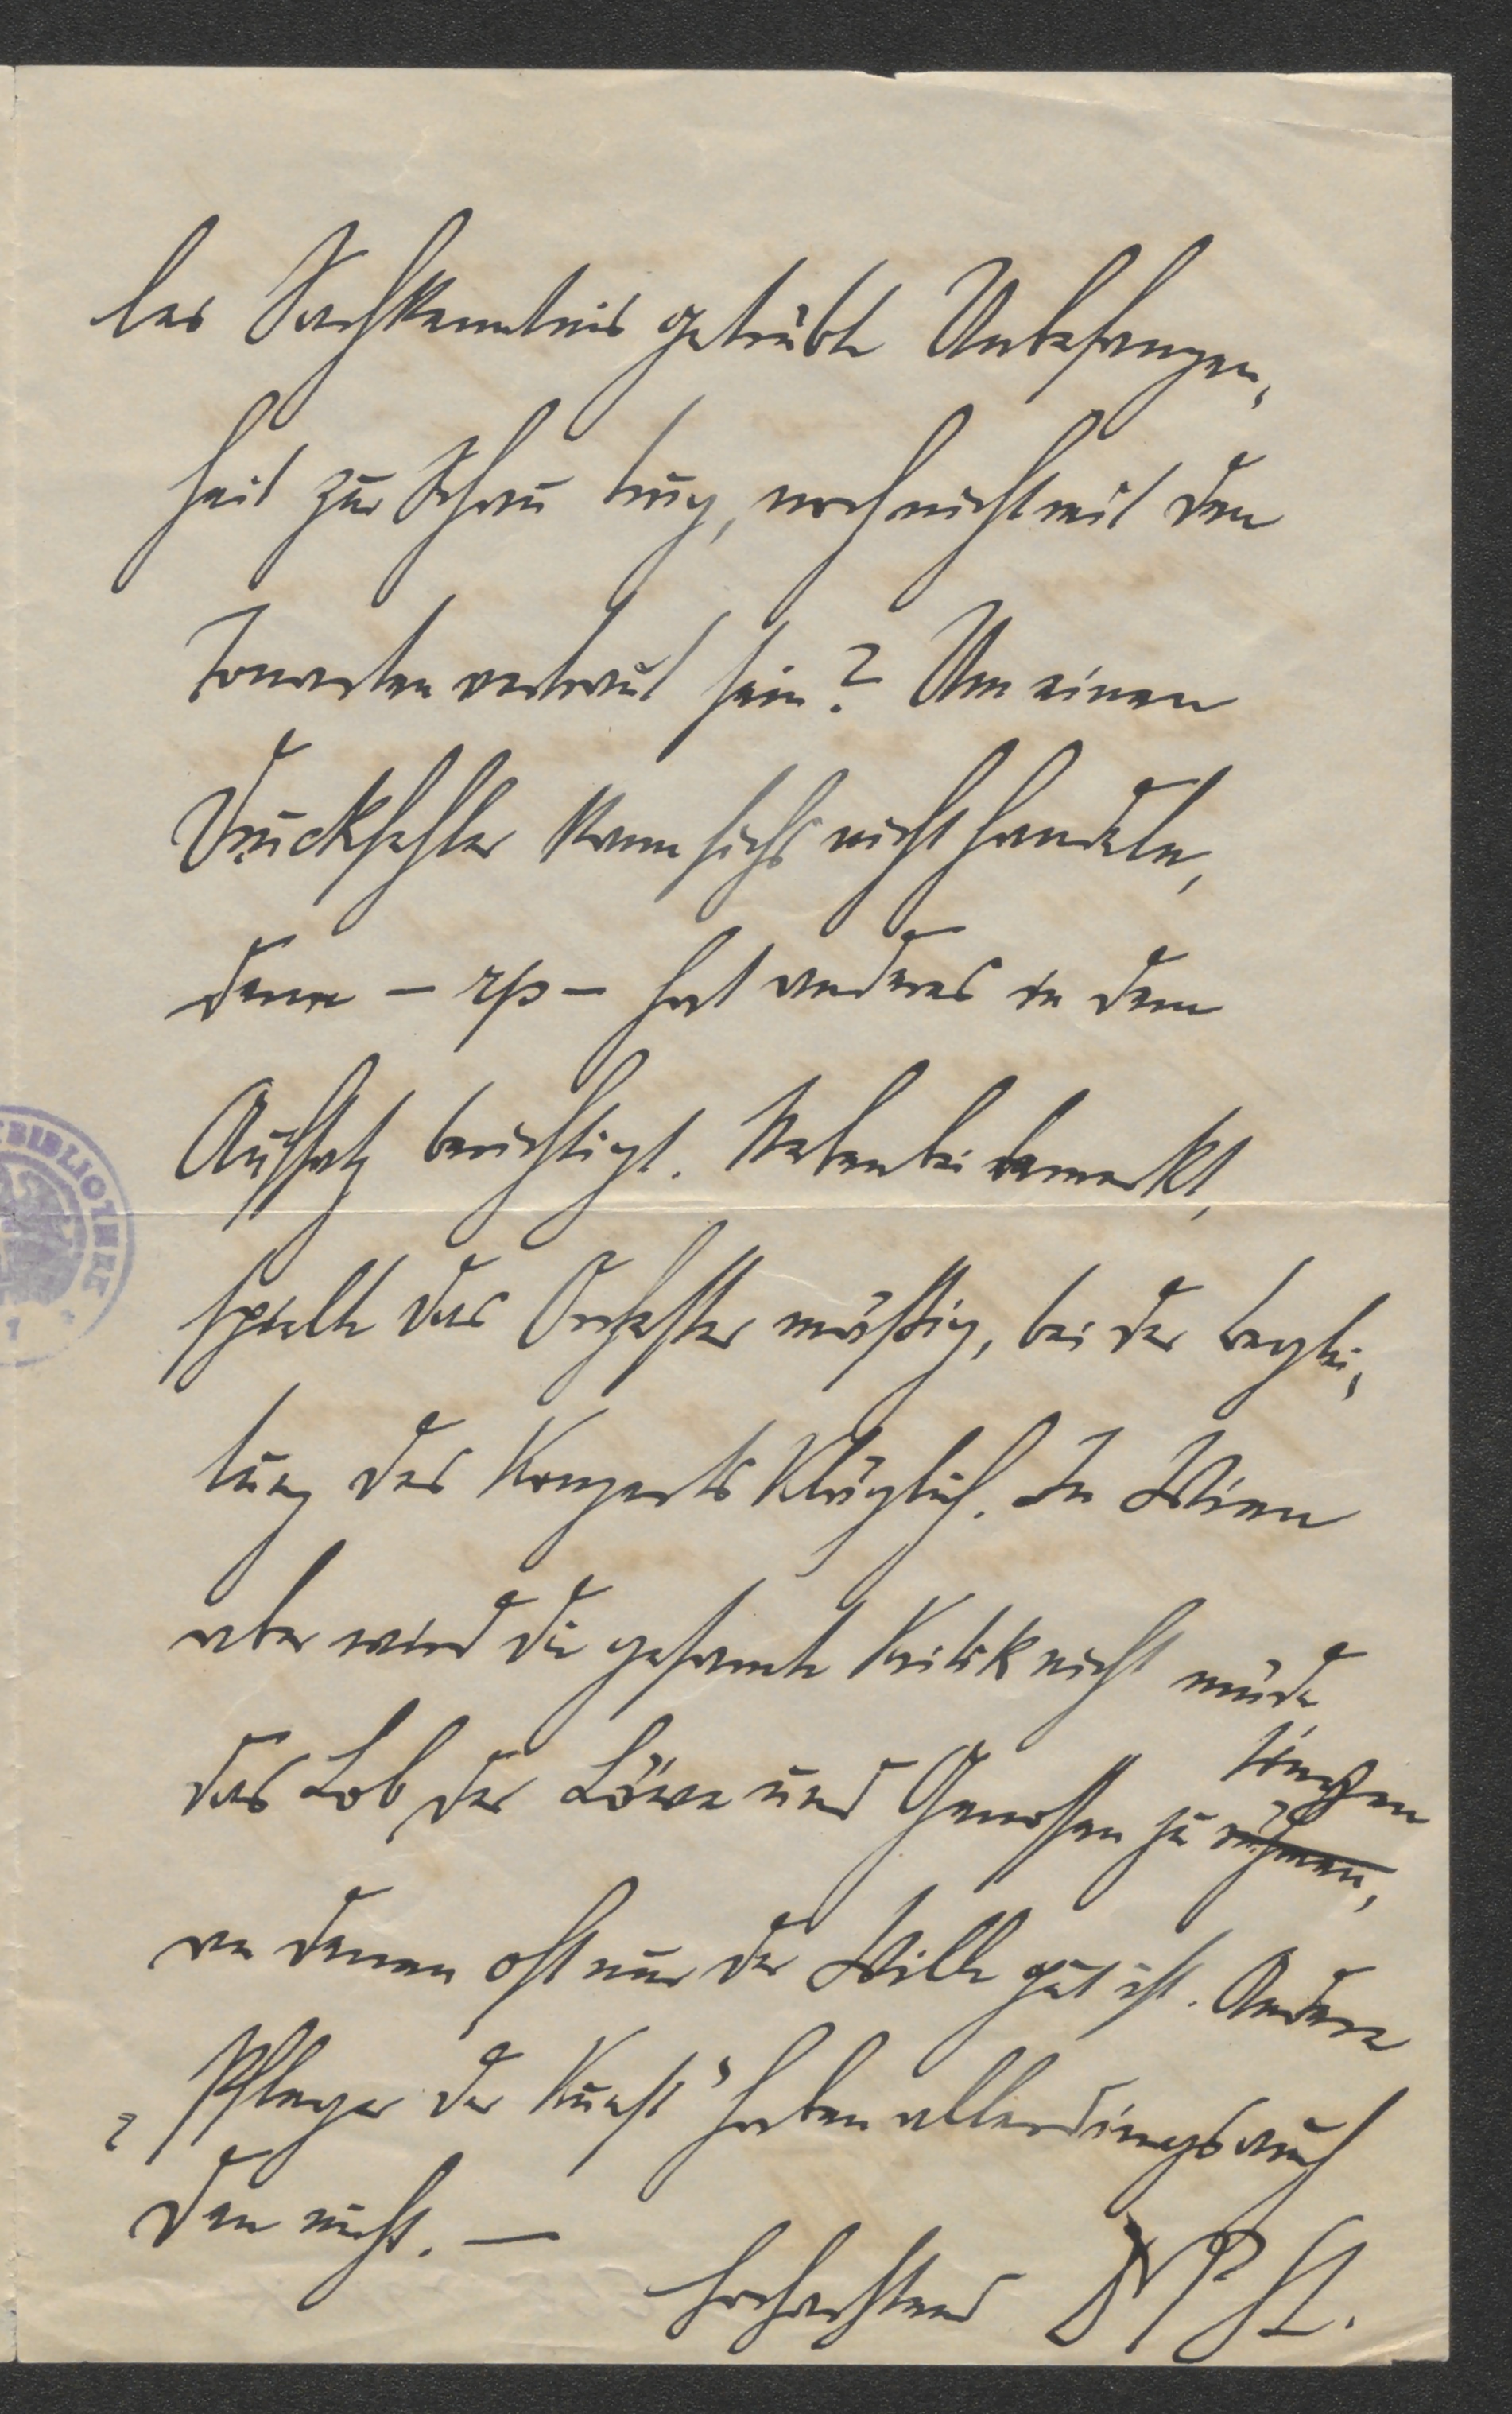 ler Sachkenntnis getrübte Unbefangen-
heit zur Schau trug, noch nicht mit den
Tonarten vertraut sein? Um einen
Druckfehler kann sichs nicht handeln,
denn – rp – hat anderes in dem
Aufsatz berichtigt. Nebenbei bemerkt,
spielte das Orchester mäßig, bei der Beglei-
tung des Konzerts kläglich. In Wien
aber wird die gesamte Kritik nicht müde
das Lob der Löwe und Genossen zu
singen
rühmen,
an denen oft nur der Wille gut ist. Andere
„Pfleger der Kunst" haben allerdings auch
den nicht. –
Hochachtend
BIBLIOTHEK